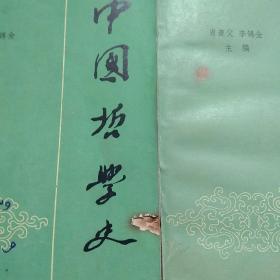 锡全
中國哲學史
肖萐父 李锦全
主编